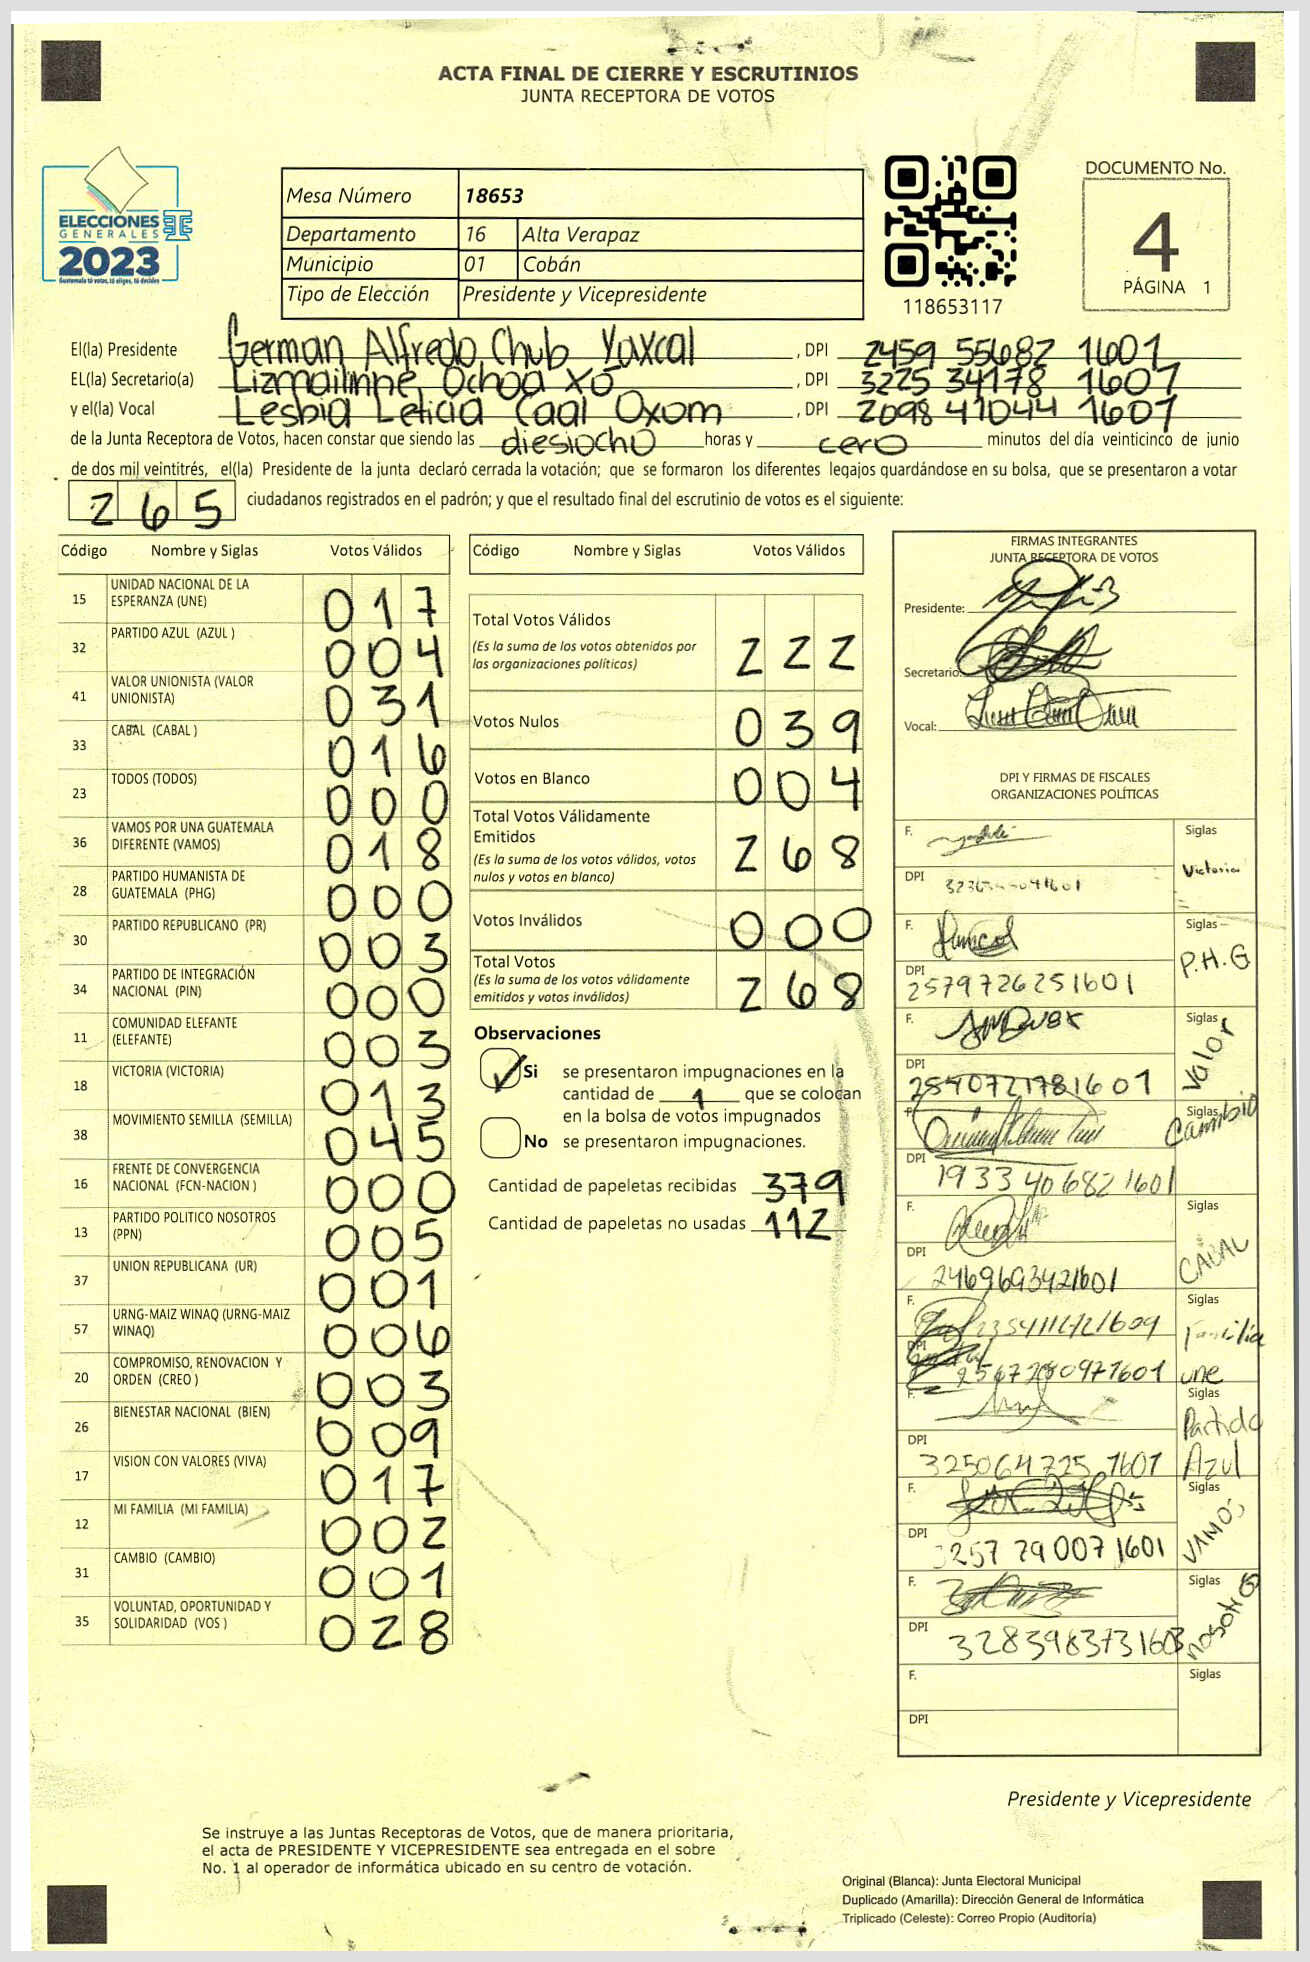 ACTA FINAL DE CIERRE Y ESCRUTINIOS
JUNTA RECEPTORA DE VOTOS
ELECCIONES
GENERALES
2023
Guatemala tú votas, tú eliges, tú decides
Mesa Número 18653
Departamento 16 Alta Verapaz
Municipio 01 Cobán
Tipo de Elección Presidente y Vicepresidente
118653117
DOCUMENTO No.
4
PÁGINA 1
El(la) Presidente German Alfredo Chub Yaxcal , DPI 2459 55682 1601
EL(la) Secretario(a) Lizmailinne Ochoa Xó , DPI 3225 34178 1607
y el(la) Vocal Lesbia Leticia Caal Oxom , DPI 2098 41044 1601
de la Junta Receptora de Votos, hacen constar que siendo las diesiocho horas y cero minutos del día veinticinco de junio
de dos mil veintitrés, el(la) Presidente de la junta declaró cerrada la votación; que se formaron los diferentes legajos guardándose en su bolsa, que se presentaron a votar
265 ciudadanos registrados en el padrón; y que el resultado final del escrutinio de votos es el siguiente:
Código Nombre y Siglas Votos Válidos
15 UNIDAD NACIONAL DE LA ESPERANZA (UNE) 017
32 PARTIDO AZUL (AZUL ) 004
41 VALOR UNIONISTA (VALOR UNIONISTA) 031
33 CABAL (CABAL ) 016
23 TODOS (TODOS) 000
36 VAMOS POR UNA GUATEMALA DIFERENTE (VAMOS) 018
28 PARTIDO HUMANISTA DE GUATEMALA (PHG) 000
30 PARTIDO REPUBLICANO (PR) 003
34 PARTIDO DE INTEGRACIÓN NACIONAL (PIN) 000
11 COMUNIDAD ELEFANTE (ELEFANTE) 003
18 VICTORIA (VICTORIA) 013
38 MOVIMIENTO SEMILLA (SEMILLA) 045
16 FRENTE DE CONVERGENCIA NACIONAL (FCN-NACION ) 000
13 PARTIDO POLITICO NOSOTROS (PPN) 005
37 UNION REPUBLICANA (UR) 001
57 URNG-MAIZ WINAQ (URNG-MAIZ WINAQ) 006
20 COMPROMISO, RENOVACION Y ORDEN (CREO ) 003
26 BIENESTAR NACIONAL (BIEN) 009
17 VISION CON VALORES (VIVA) 017
12 MI FAMILIA (MI FAMILIA) 002
31 CAMBIO (CAMBIO) 001
35 VOLUNTAD, OPORTUNIDAD Y SOLIDARIDAD (VOS ) 028
Código Nombre y Siglas Votos Válidos
Total Votos Válidos 222
(Es la suma de los votos obtenidos por
las organizaciones políticas)
Votos Nulos 039
Votos en Blanco 004
Total Votos Válidamente
Emitidos 268
(Es la suma de los votos válidos, votos
nulos y votos en blanco)
Votos Inválidos 000
Total Votos 268
(Es la suma de los votos válidamente
emitidos y votos inválidos)
Observaciones
Si se presentaron impugnaciones en la
cantidad de 1 que se colocan
en la bolsa de votos impugnados
No se presentaron impugnaciones.
Cantidad de papeletas recibidas 379
Cantidad de papeletas no usadas 112
FIRMAS INTEGRANTES
JUNTA RECEPTORA DE VOTOS
Presidente:
Secretario:
Vocal:
DPI Y FIRMAS DE FISCALES
ORGANIZACIONES POLÍTICAS
F. Siglas Victoria
DPI
F. Siglas P.H.G
DPI 2579726251601
F. Siglas Valor
DPI 2540721781601
F. Siglas Cambio
DPI 1933406821601
F. Siglas CABAL
DPI 2469693421601
F. Siglas Familia
DPI une
F. Siglas Partido Azul
DPI 3250647251601
F. Siglas VAMOS
DPI 3257790071601
F. Siglas nosotros
DPI 3283983731603
F. Siglas
DPI
Presidente y Vicepresidente
Se instruye a las Juntas Receptoras de Votos, que de manera prioritaria,
el acta de PRESIDENTE Y VICEPRESIDENTE sea entregada en el sobre
No. 1 al operador de informática ubicado en su centro de votación.
Original (Blanca): Junta Electoral Municipal
Duplicado (Amarilla): Dirección General de Informática
Triplicado (Celeste): Correo Propio (Auditoría)